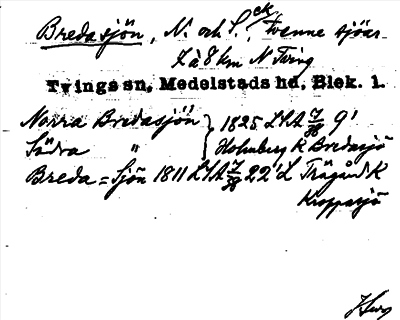 Bredasjön, N. och S., tvenne sjöar
7 à 8 km N Tving
Tvings sn, Medelstads hd, Blek. l.
Norra Bredasjön } 1825 LSA 9'
Södra " Holmberg K Bredasjö
Breda=Sjön 1811 LSA 22' L Trägård K
Kroppasjö